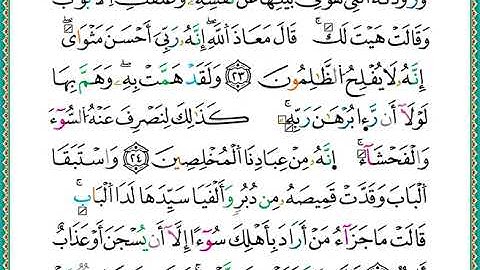 وَرَٰوَدَتْهُ ٱلَّتِى هُوَ فِى بَيْتِهَا عَن نَّفْسِهِۦ وَغَلَّقَتِ ٱلْأَبْوَٰبَ
وَقَالَتْ هَيْتَ لَكَ ۚ قَالَ مَعَاذَ ٱللَّهِ ۖ إِنَّهُۥ رَبِّىٓ أَحْسَنَ مَثْوَاىَ ۖ
إِنَّهُۥ لَا يُفْلِحُ ٱلظَّٰلِمُونَ ﴿٢٣﴾ وَلَقَدْ هَمَّتْ بِهِۦ ۖ وَهَمَّ بِهَا
لَوْلَآ أَن رَّءَا بُرْهَٰنَ رَبِّهِۦ ۚ كَذَٰلِكَ لِنَصْرِفَ عَنْهُ ٱلسُّوٓءَ
وَٱلْفَحْشَآءَ ۚ إِنَّهُۥ مِنْ عِبَادِنَا ٱلْمُخْلَصِينَ ﴿٢٤﴾ وَٱسْتَبَقَا
ٱلْبَابَ وَقَدَّتْ قَمِيصَهُۥ مِن دُبُرٍ وَأَلْفَيَا سَيِّدَهَا لَدَا ٱلْبَابِ ۚ
قَالَتْ مَا جَزَآءُ مَنْ أَرَادَ بِأَهْلِكَ سُوٓءًا إِلَّآ أَن يُسْجَنَ أَوْ عَذَابٌ